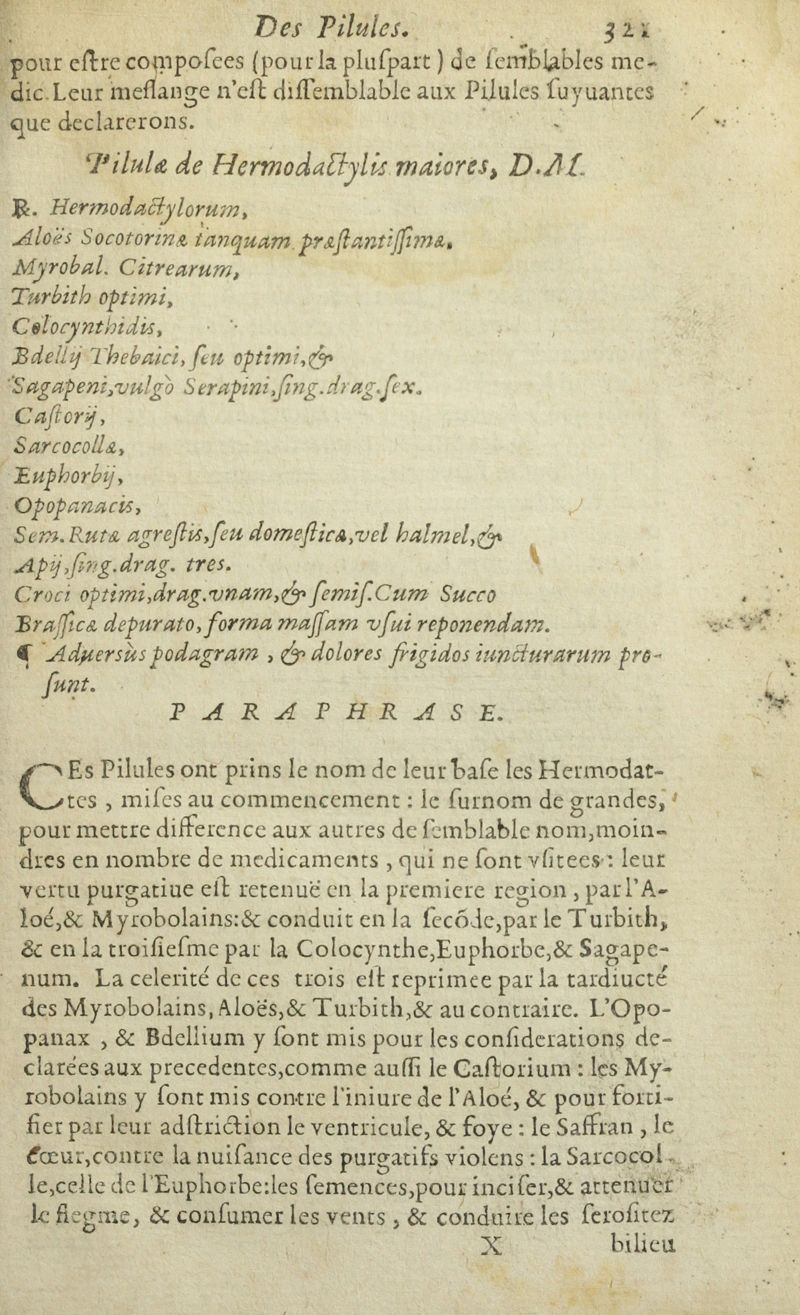 Des Pilules. 321
pour eſtre compoſees (pour la pluſpart) de ſemblables me-
dic. Leur meſlange n'eſt diſſemblable aux Pilules ſuyuantes
que declarerons.
Pilulæ de Hermodactylis maiores, D. M.
℞. Hermodactylorum,
Aloës Socotorinæ tanquam præſtantiſſimæ,
Myrobal. Citrearum,
Turbith optimi,
Colocynthidis,
Bdellij Thebaici, ſeu optimi, &
Sagapeni, vulgò Serapini, ſing. drag. ſex.
Caſtorij,
Sarcocollæ,
Euphorbij,
Opopanacis,
Sem. Rutæ agreſtis, ſeu domeſticæ, vel halmel, &
Apij, ſing. drag. tres.
Croci optimi, drag. vnam, & ſemiſ. Cum Succo
Braſſicæ depurato, forma maſſam vſui reponendam.
¶ Aduersùs podagram, & dolores frigidos iuncturarum pro-
ſunt.
PARAPHRASE.
CEs Pilules ont prins le nom de leur baſe les Hermodat-
tes, miſes au commencement : le ſurnom de grandes,
pour mettre difference aux autres de ſemblable nom, moin-
dres en nombre de medicaments, qui ne ſont vſitees : leur
vertu purgatiue eſt retenuë en la premiere region, par l'A-
loé, & Myrobolains: & conduit en la ſecõde, par le Turbith,
& en la troiſieſme par la Colocynthe, Euphorbe, & Sagape-
num. La celerité de ces trois eſt reprimee par la tardiueté
des Myrobolains, Aloës, & Turbith, & au contraire. L'Opo-
panax, & Bdellium y ſont mis pour les conſiderations de-
clarées aux precedentes, comme auſſi le Caſtorium : les My-
robolains y ſont mis contre l'iniure de l'Aloé, & pour forti-
fier par leur adſtriction le ventricule, & foye : le Saffran, le
cœur, contre la nuiſance des purgatifs violens : la Sarcocol-
le, celle de l'Euphorbe: les ſemences, pour inciſer, & attenuer
le flegme, & conſumer les vents, & conduire les ſeroſitez
X bilieu